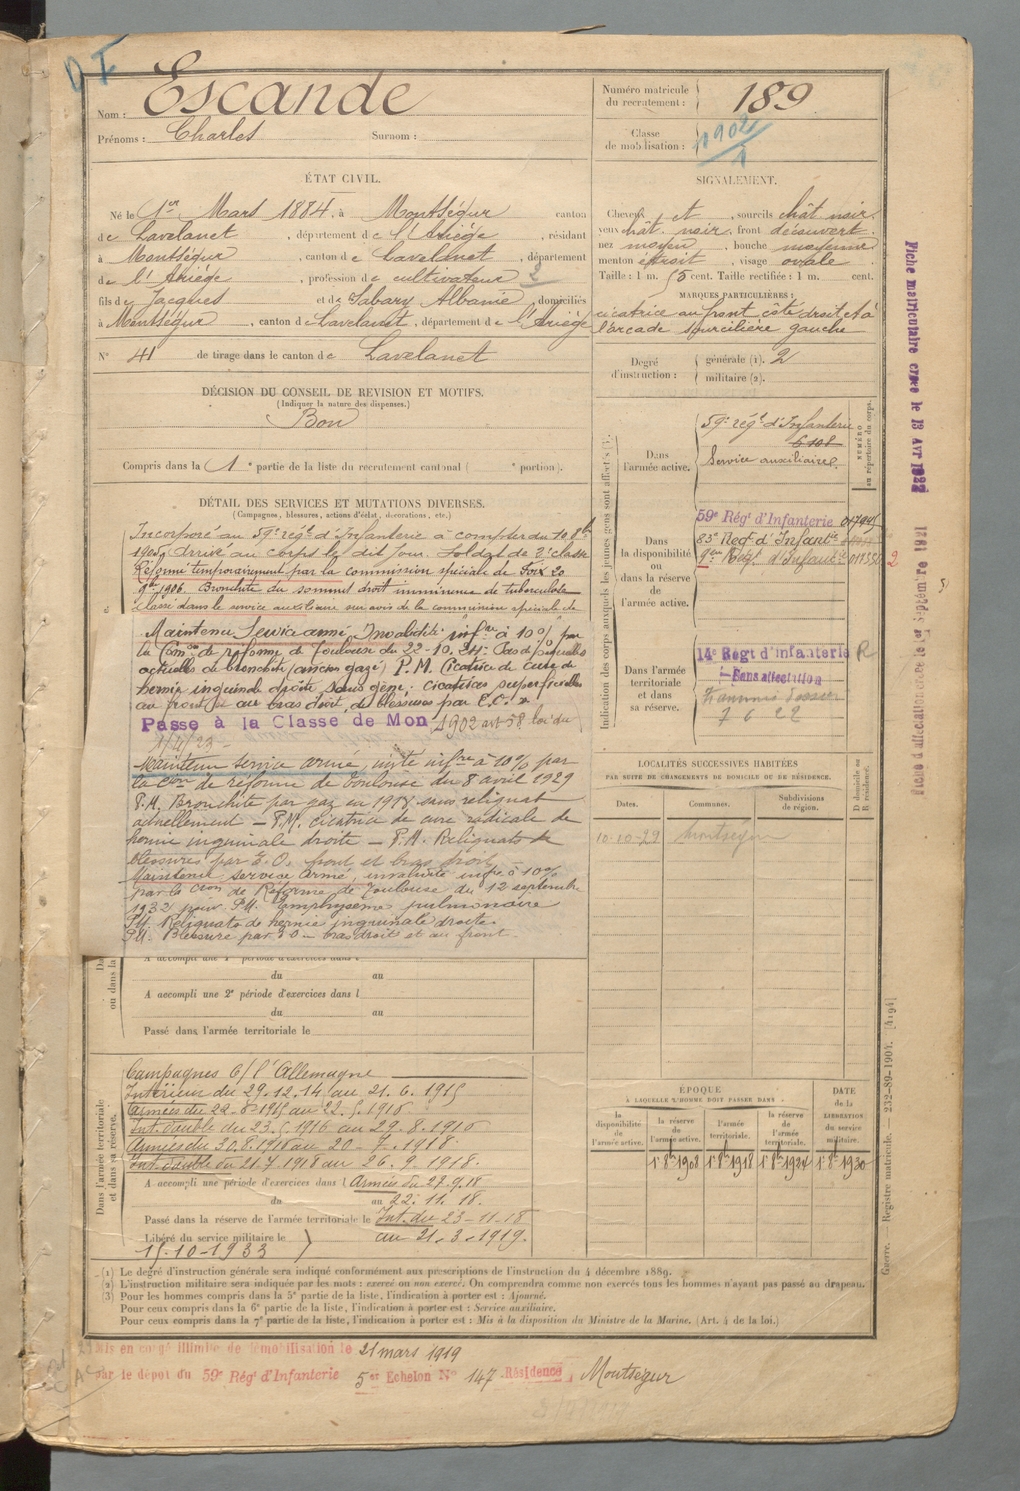 D I
Nom : Escande
Prénoms : Charles Surnom :
ÉTAT CIVIL.
Né le 1er Mars 1884, à Montségur canton
de Lavelanet, département de l'Ariège, résidant
à Montségur, canton de Lavelanet, département
de l'Ariège, profession de cultivateur 2
fils de Jacques et de Sabary Albanie, domiciliés
à Montségur, canton de Lavelanet, département de l'Ariège
N° 41 de tirage dans le canton de Lavelanet
DÉCISION DU CONSEIL DE REVISION ET MOTIFS.
(Indiquer la nature des dispenses.)
Bon
Compris dans la 1e partie de la liste du recrutement cantonal ( e portion).
DÉTAIL DES SERVICES ET MUTATIONS DIVERSES.
(Campagnes, blessures, actions d'éclat, décorations, etc.)
Incorporé au 59e régt d'Infanterie à compter du 10 8bre
1905. Arrivé au corps le dit jour. Soldat de 2e classe
Réformé temporairement par la commission spéciale de Foix 20
9bre 1906. Bronchite du sommet droit imminence de tuberculose
Classé dans le service auxiliaire sur avis de la commission spéciale de
Maintenu Service armé, Invalidité infre à 10% par
la Comon de réforme de Toulouse du 22-10-24. Pas de
actuelles de bronchite (ancien gazé) P.M. Cicatrice de cure de
hernie inguinale droite sans gêne, cicatrices superficielles
au front et au bras droit, de blessures par E.O.
Passé à la Classe de Mon 1902 art 58 loi du
1/4/23 -
Maintenu service armé, invte infre à 10% par
la cion de réforme de Toulouse du 8 avril 1929
P.M. Bronchite par gaz en 1918 sans reliquat
actuellement — P.M. cicatrice de cure radicale de
hernie inguinale droite — P.M. Reliquats de
blessures par E.O. front et bras droit —
Maintenu service armé, invalidité infre à 10%
par la cion de Réforme de Toulouse du 12 septembre
1932 pour P.M. Emphysème pulmonaire
P.M. Reliquats de hernie inguinale droite.
P.M. Blessure par E O — bras droit et au front.
du au
A accompli une 2e période d'exercices dans l
du au
Passé dans l'armée territoriale le
Dans l'armée territoriale et dans sa réserve.
Campagnes C/ l'Allemagne
Intérieur du 29.12.14 au 21.6.1915
Armées du 22-6-1915 au 22.5.1916
Int. double du 23.5.1916 au 29.8.1916
Armées du 30.8.1916 au 20-7.1918.
Int. double du 21.7.1918 au 26.9.1918.
A accompli une période d'exercices dans l Armées du 27.9.18
du au 22.11.18.
Passé dans la réserve de l'armée territoriale le Int. du 23-11-18
Libéré du service militaire le au 21.3.1919.
15-10-1933
Numéro matricule du recrutement : 189
Classe de mobilisation : 1902/1
SIGNALEMENT.
Cheveux et, sourcils chât. noir.
yeux chât. noir, front découvert.
nez moyen, bouche moyenne
menton étroit, visage ovale
Taille : 1 m. 65 cent. Taille rectifiée : 1 m. cent.
MARQUES PARTICULIÈRES :
cicatrice au front côté droit et à
l'arcade sourcilière gauche
Degré d'instruction : générale (1). 2
militaire (2).
Indication des corps auxquels les jeunes gens sont affectés (3).
NUMÉRO au répertoire du corps.
Dans l'armée active.
59e régt d'Infanterie
6108
Service auxiliaire.
Dans la disponibilité ou dans la réserve de l'armée active.
59e Régt d'Infanterie
83e Regt d'Infantie
9eme Régt d'Infantie 2
Dans l'armée territoriale et dans sa réserve.
14e Régt d'infanterie R
Sans affectation
7 6 22
LOCALITÉS SUCCESSIVES HABITÉES
PAR SUITE DE CHANGEMENTS DE DOMICILE OU DE RÉSIDENCE.
Dates. Communes. Subdivisions de région. D domicile ou R résidence.
10-10-29 Montségur
ÉPOQUE
À LAQUELLE L'HOMME DOIT PASSER DANS
la disponibilité de l'armée active. la réserve de l'armée active. l'armée territoriale. la réserve de l'armée territoriale.
DATE de la LIBÉRATION du service militaire.
1r 8bre 1908 1r 8bre 1918 1r 8bre 1924 1r 8bre 1930
(1) Le degré d'instruction générale sera indiqué conformément aux prescriptions de l'instruction du 4 décembre 1889.
(2) L'instruction militaire sera indiquée par les mots : exercé ou non exercé. On comprendra comme non exercés tous les hommes n'ayant pas passé au drapeau.
(3) Pour les hommes compris dans la 5e partie de la liste, l'indication à porter est : Ajourné.
Pour ceux compris dans la 6e partie de la liste, l'indication à porter est : Service auxiliaire.
Pour ceux compris dans la 7e partie de la liste, l'indication à porter est : Mis à la disposition du Ministre de la Marine. (Art. 4 de la loi.)
Mis en congé illimité de démobilisation le 21 mars 1919
Par le dépôt du 59e Régt d'Infanterie 5er Echelon N° 147 Résidence Montségur
Fiche matriculaire créée le 13 Avr 1922
Guerre. — Registre matricule. — 232-89-1904. [4194]